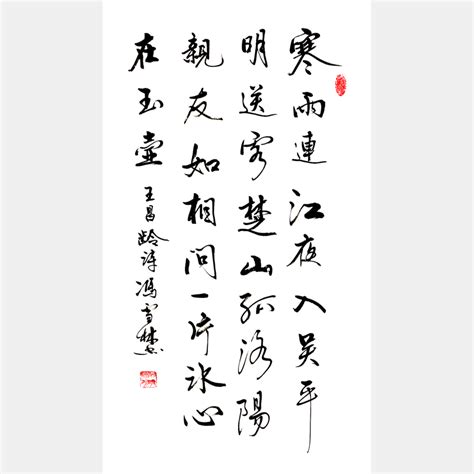 寒雨連江夜入吳平
明送客楚山孤洛陽
親友如相問一片冰心
在玉壺
王昌齡詩馮雪